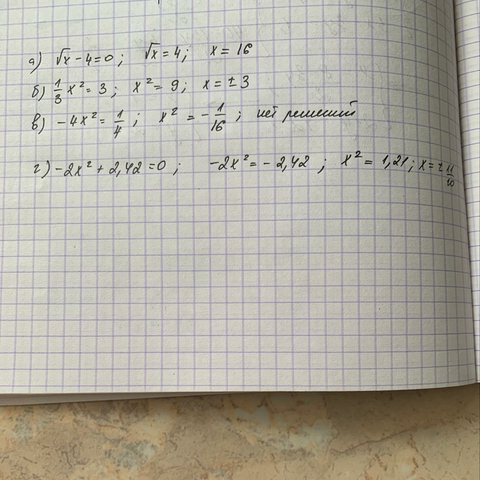 а) √x - 4 = 0 ; √x = 4 ; x = 16
б) 1/3 x² = 3 ; x² = 9 ; x = ± 3
в) -4x² = 1/4 ; x² = - 1/16 ; нет решений
г) -2x² + 2,42 = 0 ; -2x² = - 2,42 ; x² = 1,21 ; x = ± 11/10